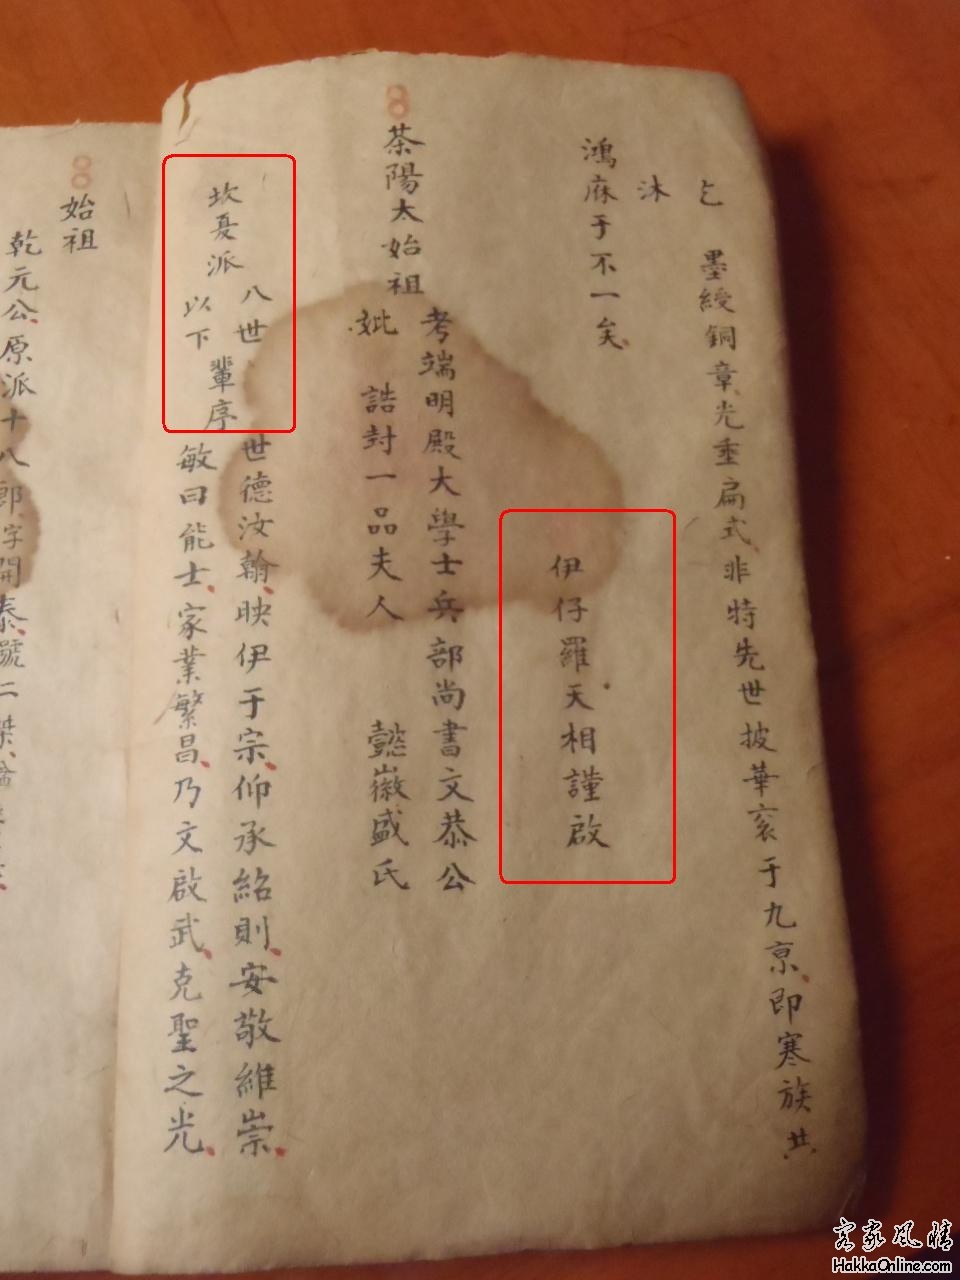 乞
墨綬銅章光垂扁式非特先世披華衮于九京即寒族共
沐
鴻庥于不一矣
伊仔羅天相謹啟
8
茶陽太始祖
考端明殿大學士兵部尚書文恭公
妣 誥封一品夫人 懿徽盛氏
坎夏派
八世
以下
輩序
世德汝翰映伊于宗仰承紹則安敬維崇
敏曰能士家業繁昌乃文啟武克聖之光
8
始祖
乾元公原派十八郎字開泰號二
客家風情
HakkaOnline.com